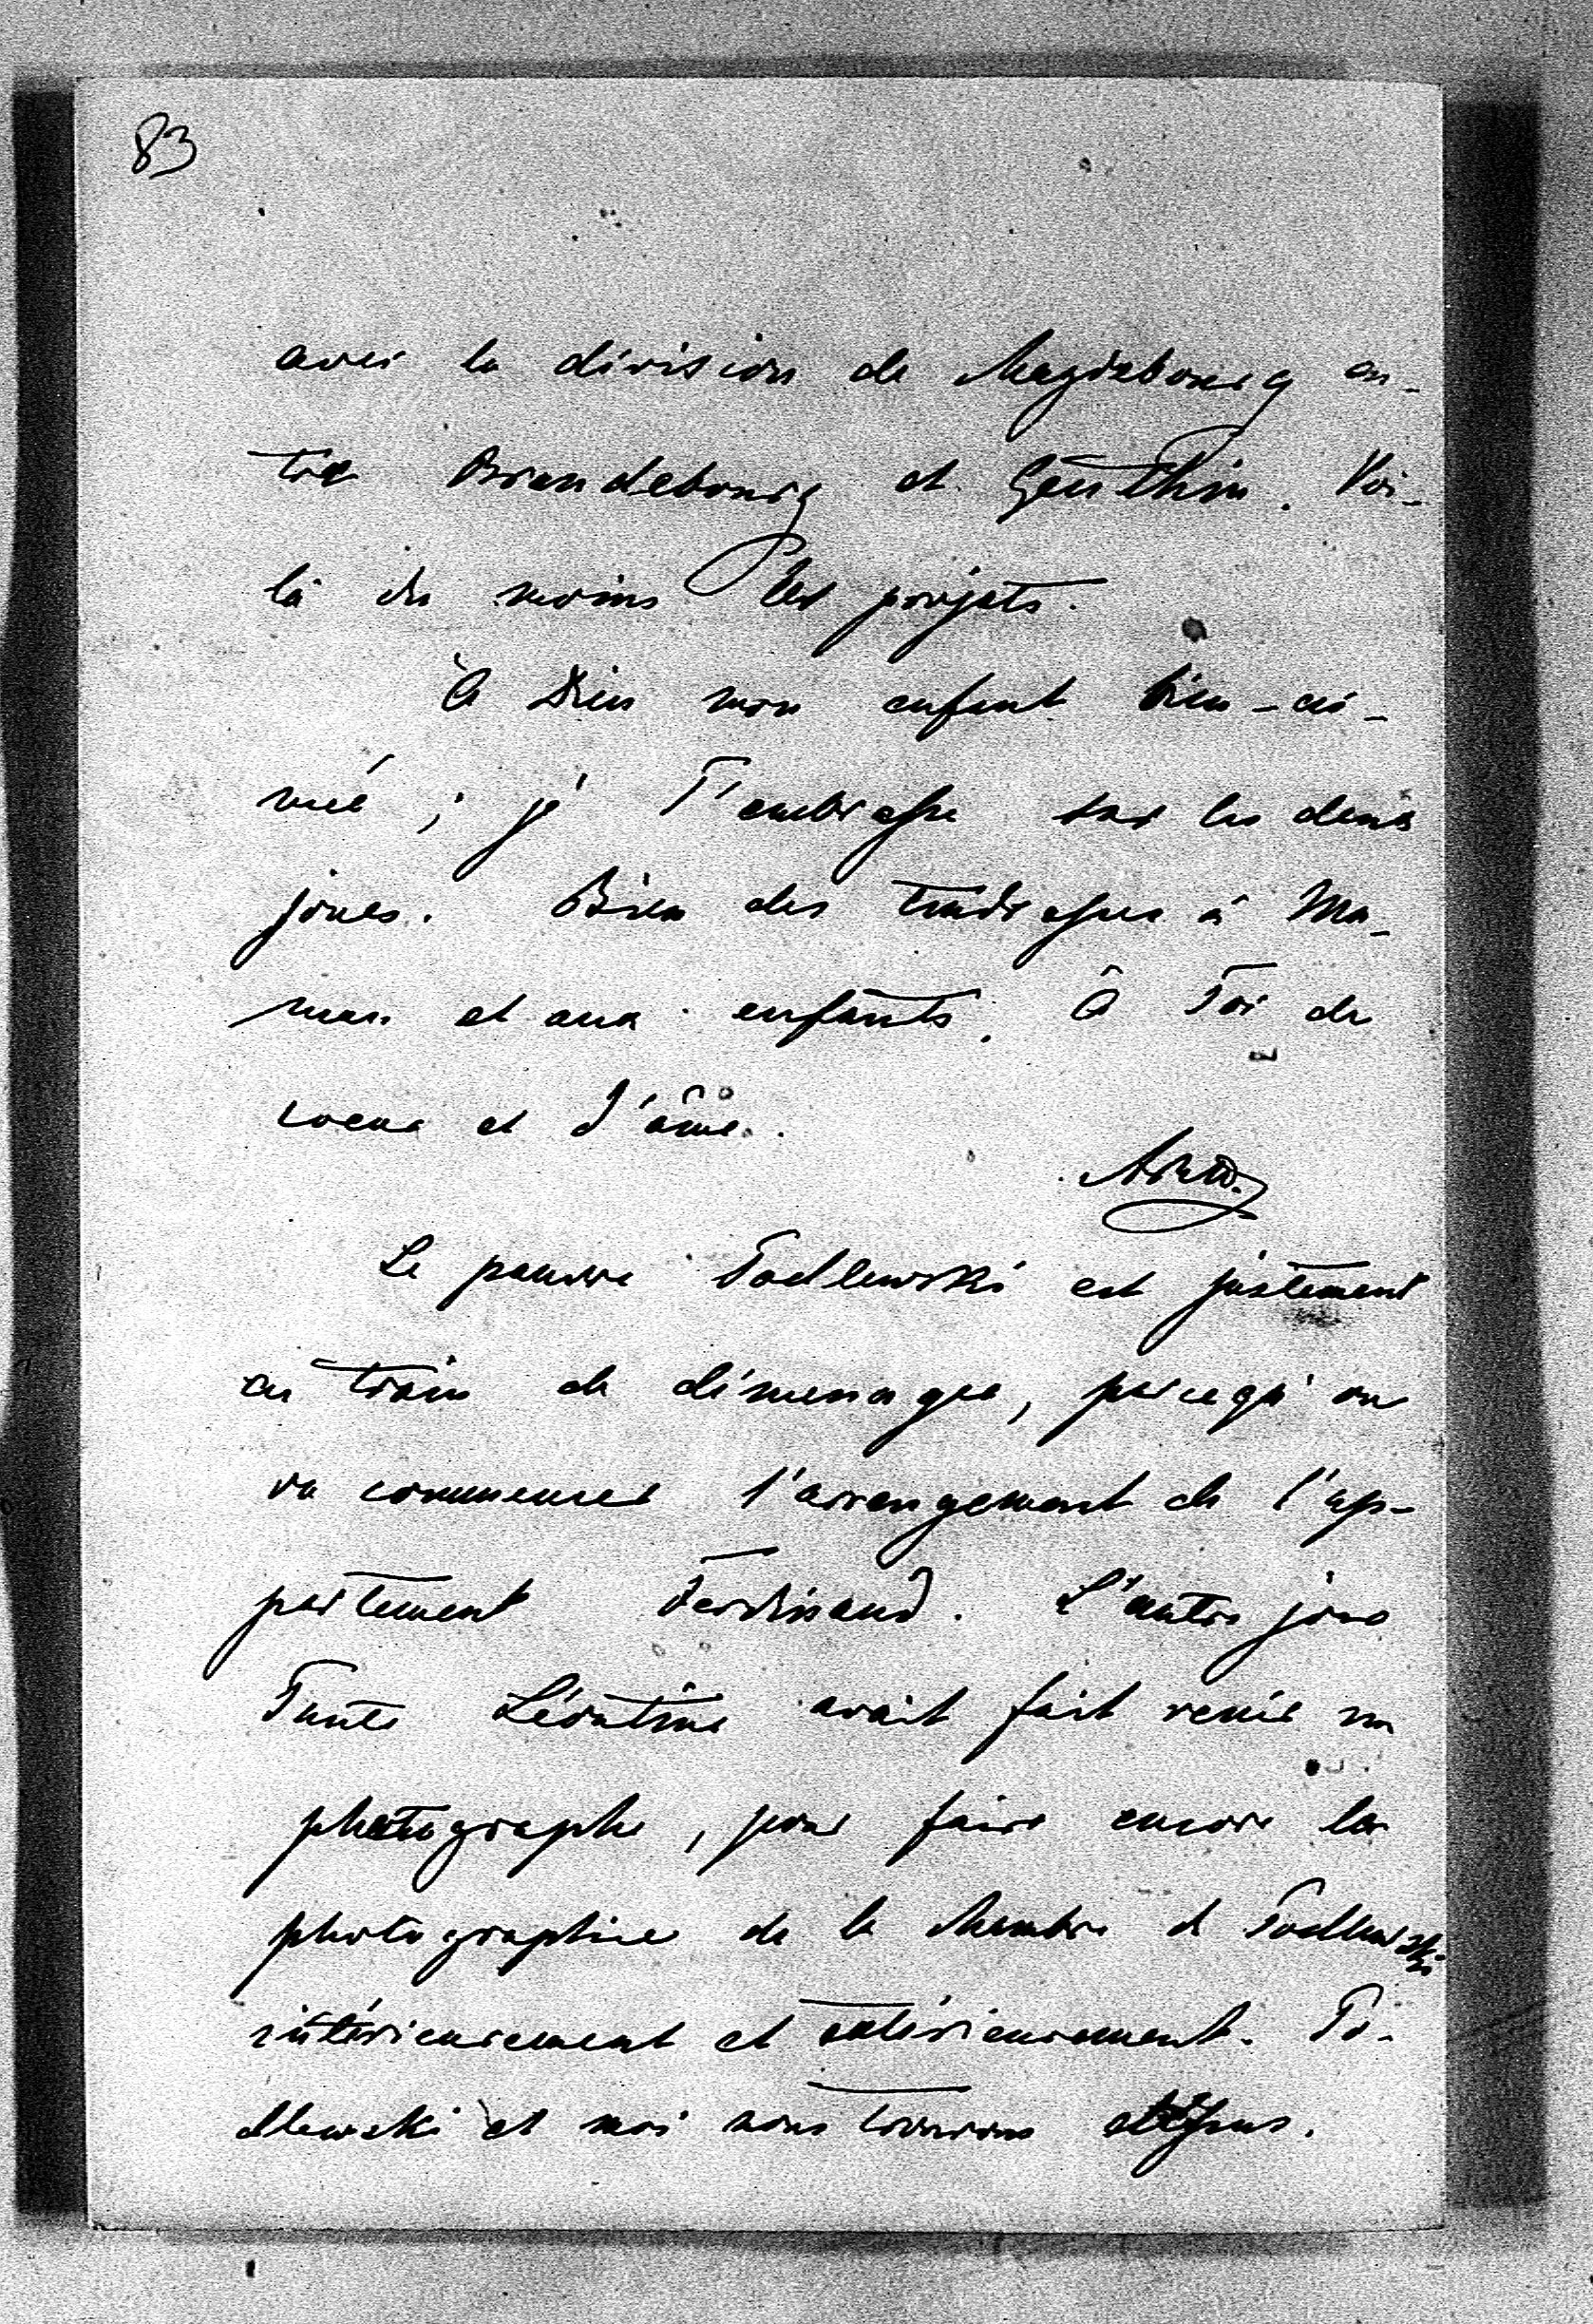 83
avec la division de Magdebourg en-
tre Brandebourg et Genthin. Voi-
là du moins les projets.
À Dieu mon enfant bien-ai-
mé ; je T'embrasse sur les deux
joues. Bien des tendresses à Ma-
man et aux enfants. À Toi de
coeur et d'âme.
Le pauvre Podlewski est justement
en train de démenager, parcequ'on
va commencer l'arrangement de l'ap-
partement Ferdinand. L'autre jour
Tante Léontine avait fait venir un
photographe, pour faire encore la
photographie de la chambre d Podlewski
intérieurement et extérieurement. Po-
dlewski et moi nous trouvons